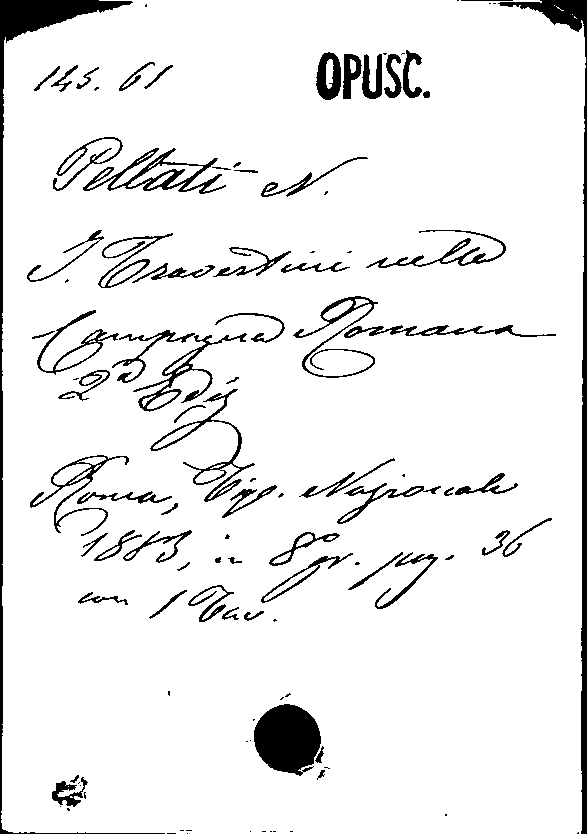 145. 61 OPUSC.
Pellati N.
I. Travertini nella
Campagna Romana
2ª Ediz
Roma, Tip. Nazionale
1883, in 8º gr. pag. 36
con 1 Tav.